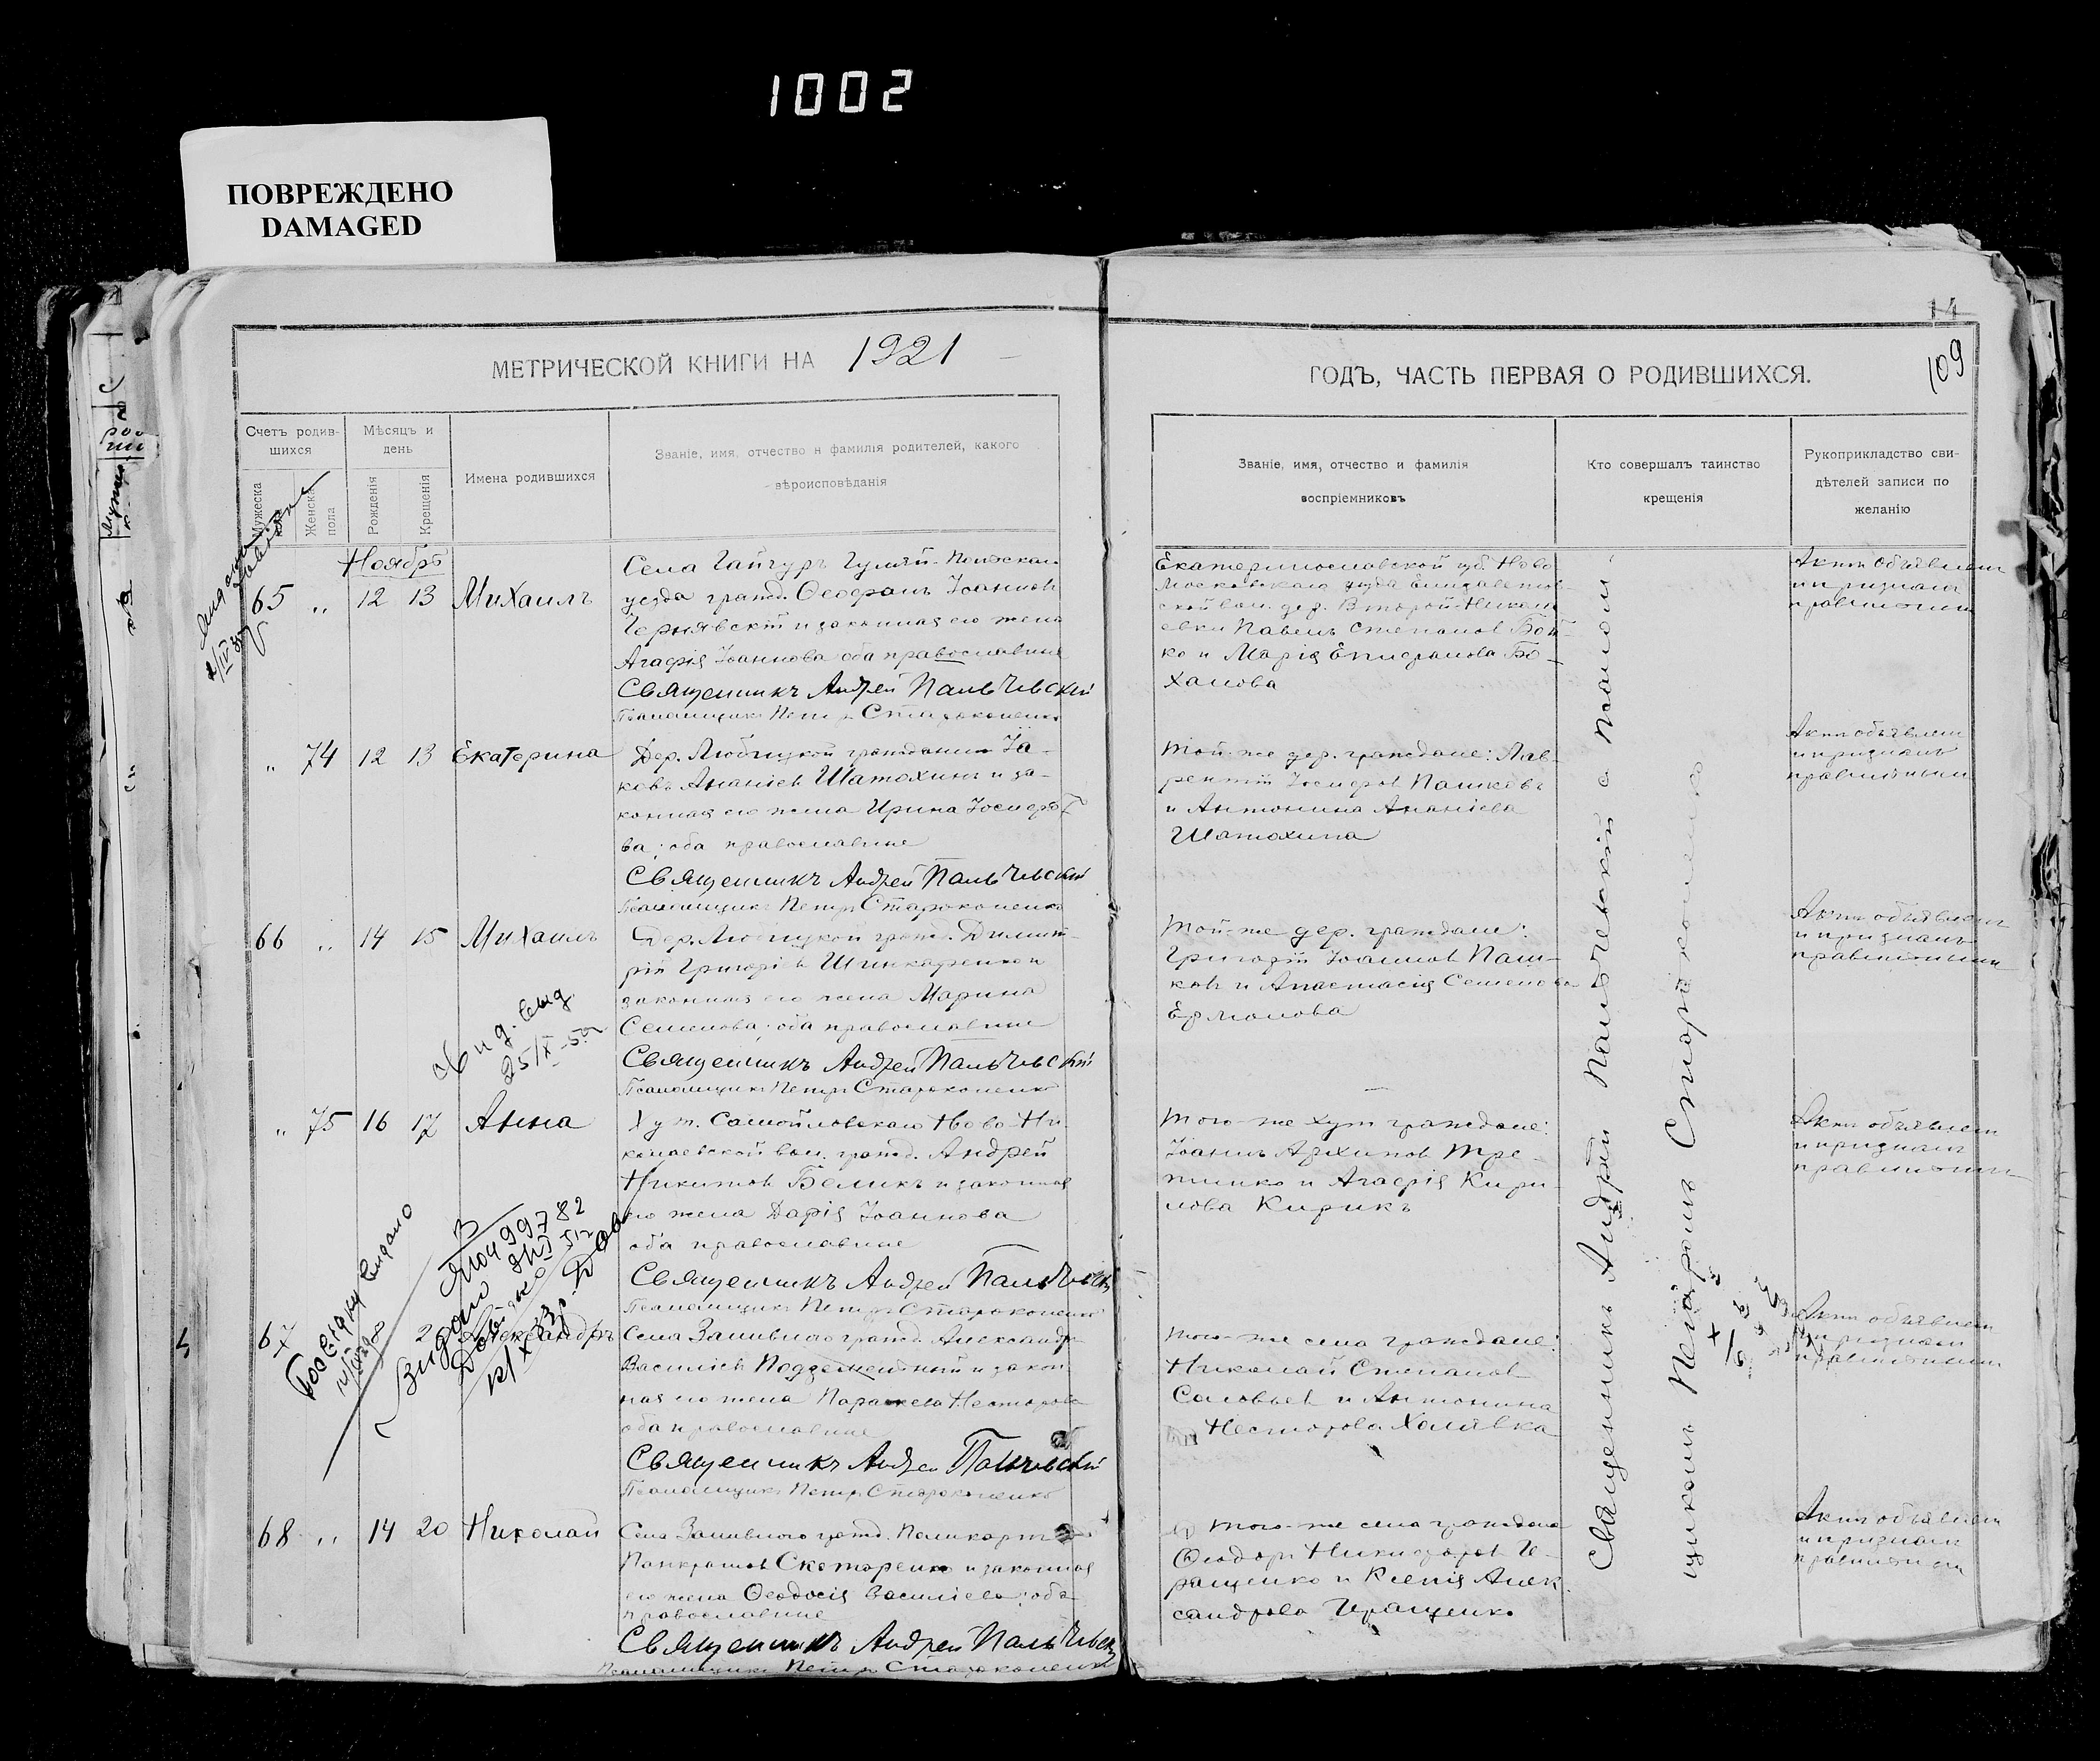 1002
ПОВРЕЖДЕНО
DAMAGED
14
109
МЕТРИЧЕСКОЙ КНИГИ НА 1921
ГОДЪ, ЧАСТЬ ПЕРВАЯ О РОДИВШИХСЯ.
Счетъ родив-
шихся
Мужеска
Женска
пола
Мѣсяцъ и
день
Рожденія
Крещенія
Имена родившихся
Званіе, имя, отчество и фамилія родителей, какого
вѣроисповѣданія
Званіе, имя, отчество и фамилія
воспріемниковъ
Кто совершалъ таинство
крещенія
Рукоприкладство сви-
дѣтелей записи по
желанію
Ноябрь
65 " 12 13 Михаилъ
Села Гайчуръ Гуляй-Польскаго
уезда гражд. Ѳеофанъ Іоанновъ
Чернявскій и законная его жена
Агафія Іоаннова оба православные
Священникъ Андрей Пальчевскій
Псаломщикъ Петръ Староконенко
Екатеринославской губ. Ново
московскаго уезда Елизаветов-
ской вол. дер. Второй-Никола
евки Павелъ Степановъ Бой-
ко и Марія Епифанова Бо-
ханова
Актъ объявленъ
и признанъ
правильнымъ
" 74 12 13 Екатерина
Дер. Любицкой гражданинъ Іа-
ковъ Ананіевъ Шатохинъ и за-
конная его жена Ирина Іосифо
ва; оба православные
Священникъ Андрей Пальчевскій
Псаломщикъ Петръ Староконенко
Той-же дер. граждане: Лав-
рентій Іосифовъ Пашковъ
и Антонина Ананіева
Шатохина
Актъ объявленъ
и признанъ
правильнымъ
66 " 14 15 Михаилъ
Дер. Любицкой гражд. Димит-
рій Григорьевъ Шинкаренко и
законная его жена Марина
Семенова; оба православные
Священникъ Андрей Пальчевскій
Псаломщикъ Петръ Староконенко
Той-же дер. граждане:
Григорій Іоанновъ Паш-
ковъ и Анастасія Семенова
Ермолова
Актъ объявленъ
и признанъ
правильнымъ
25/X-5
" 75 16 17 Анна
Хут. Самойловскаго Ново-Ни
колаевской вол. гражд. Андрей
Никитовъ Беликъ и законная
его жена Дарія Іоаннова
оба православные
Священникъ Андрей Пальчевскій
Псаломщикъ Петръ Староконенко
Того-же хут граждане:
Іоаннъ Архиповъ Тре-
тинко и Агафія Кири-
лова Кирикъ
Актъ объявленъ
и признанъ
правильнымъ
67 Александръ
Села Заливного гражд. Александръ
Василіевъ Подземельный и закон
ная его жена Параскева Несторова
оба православные
Священникъ Андрей Пальчевскій
Псаломщикъ Петръ Староконенко
Того-же села граждане:
Николай Степановъ
Соловьевъ и Антонина
Несторова Халявка
Актъ объявленъ
и признанъ
правильнымъ
68 " 14 20 Николай
Села Заливного гражд. Поликарпъ
Панкратовъ Скотаренко и законная
его жена Ѳеодосія Василіева; оба
православные
Священникъ Андрей Пальчевскій
Псаломщикъ Петръ Староконенко
Того-же села граждане
Ѳеодоръ Никифоровъ И-
ращенко и Ксенія Алек
сандрова Иращенко
Актъ объявленъ
и признанъ
правильнымъ
Священникъ Андрей Пальчевскій с Псалом-
щикомъ Петромъ Староконенко